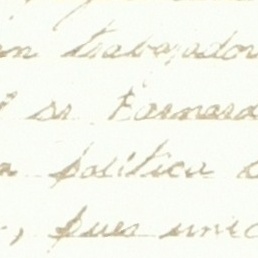 trabajador
sr Fernand
a política
, pues unic